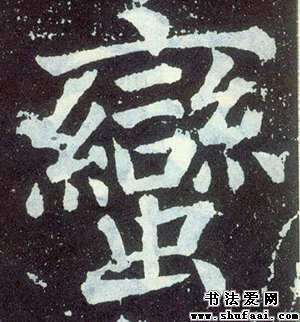 蠻
书法爱网
www.shufaai.com